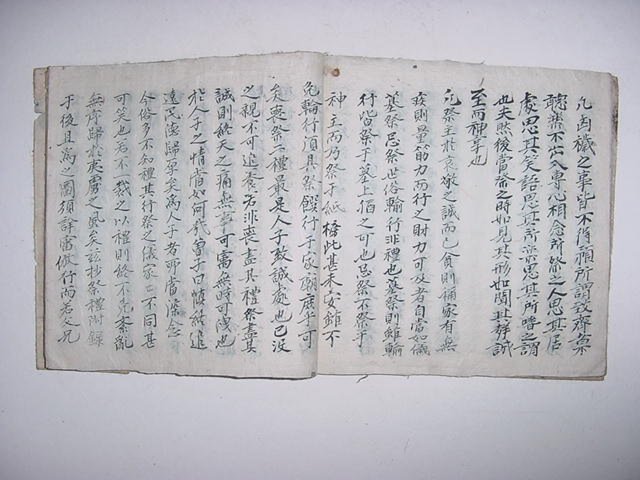 凡凶穢之事皆不得預所謂致齊者不
聽樂不出入專心想念所祭之人思其居
處思其笑語思其所樂思其所嗜之謂
也夫然後當祭之時如見其形如聞其聲誠
至而神享也
凡祭主於愛敬之誠而已貧則稱家有無
疾則量筋力而行之財力可及者自當如儀
墓祭忌祭世俗輪行非禮也墓祭則雖輪
行皆祭于墓上猶之可也忌祭不祭于
神主而乃祭于紙榜此甚未安雖不
免輪行須具祭饌行于家廟庶乎可
矣喪祭二禮最是人子致誠處也已沒
之親不可追養若非喪盡其禮祭盡其
誠則終天之痛無事可寓無時可洩也
於人子之情當如何哉曾子曰愼終追
遠民德歸厚矣爲人子者所當深念
今俗多不知禮其行祭之儀家〻不同甚
可笑也若不一裁之以禮則終不免紊亂
無序歸於夷虜之風矣茲抄祭禮附錄
于後且爲之圖須詳審倣行而若父兄